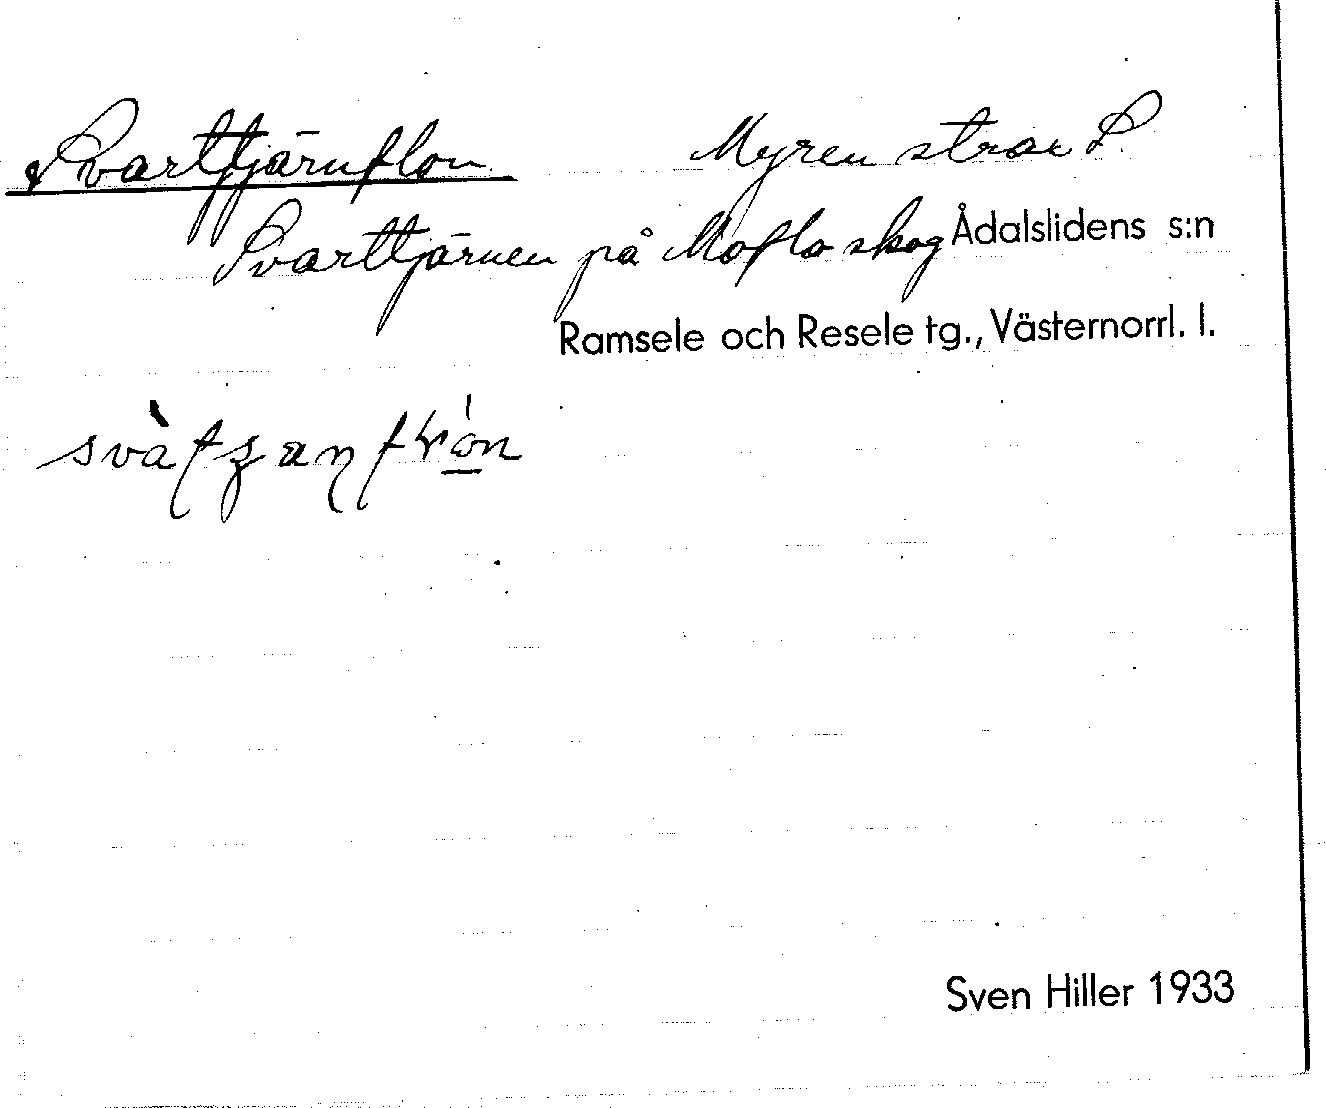 Svarttjärnflon Myren strax S.
Svarttjärnen på Moflo skog Ådalslidens s:n
Ramsele och Resele tg., Västernorrl. l.
Sven Hiller 1933